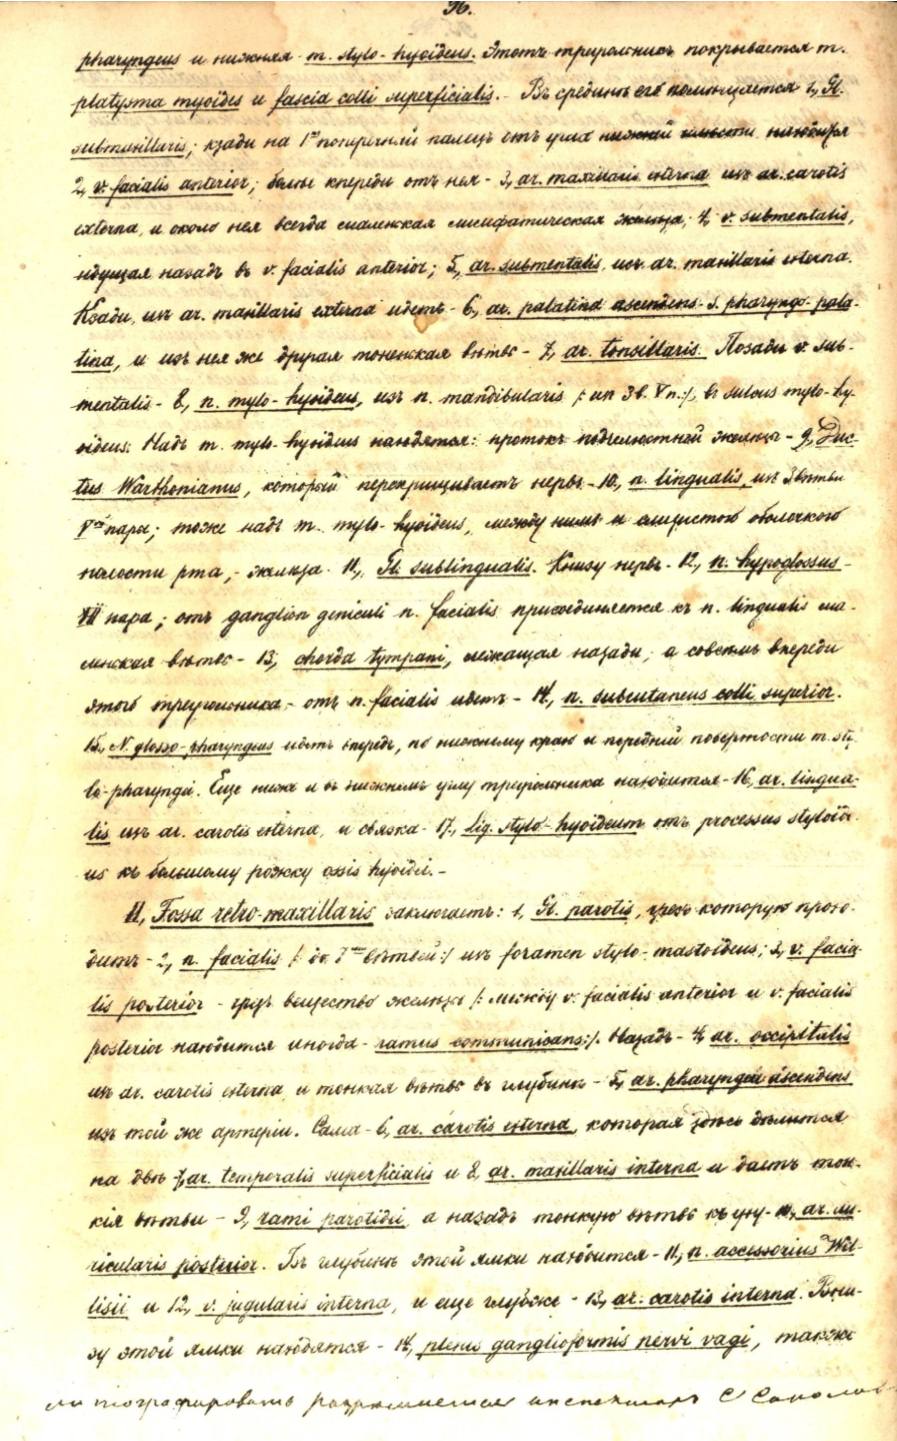 96.
pharyngeus и нижняя - m. stylo-hyoideus. Этотъ треугольникъ покрывается m.
platysma myoides и fascia colli superficialis. - Въ срединѣ его помѣщается 1, Gl.
submaxillaris; кзади на 1 поперечный палецъ отъ угла нижней челюсти находится
2, v. facialis anterior; болѣе кпереди отъ нея - 3, ar. maxillaris externa изъ ar. carotis
externa, и около нея всегда маленькая лимфатическая железа; 4, v. submentalis,
идущая назадъ въ v. facialis anterior; 5, ar. submentalis, изъ ar. maxillaris externa.
Кзади, изъ ar. maxillaris externa идетъ - 6, ar. palatina ascendens s. pharyngo-pala-
tina, и изъ нея же другая тоненькая вѣтвь - 7, ar. tonsillaris. Позади v. sub-
mentalis - 8, n. mylo-hyoideus, изъ n. mandibularis /: изъ 3 в. V п.:/, въ sulcus mylo-hy-
oideus. Надъ m. mylo-hyoideus находятся: протокъ подчелюстной железы - 9, Duc-
tus Warthonianus, который перекрещиваетъ нервъ - 10, n. lingualis, изъ 3 вѣтви
V пары; тоже надъ m. mylo-hyoideus, между нимъ и слизистою оболочкою
полости рта, - железа 11, Gl. sublingualis. Книзу нервъ - 12, n. hypoglossus -
XII пара; отъ ganglion geniculi n. facialis присоединяется къ n. lingualis ма-
ленькая вѣтвь - 13, chorda tympani, лежащая назади; а совсѣмъ впереди
этого треугольника - отъ n. facialis идетъ - 14, n. subcutaneus colli superior.
15, N. glosso-pharyngeus идетъ впередъ, по нижнему краю и передней поверхности m. sty-
lo-pharyngei. Еще ниже и въ нижнемъ углу треугольника находится - 16, ar. lingua-
lis изъ ar. carotis externa, и связка - 17, lig. stylo-hyoideum отъ processus styloide-
us къ большому рожку ossis hyoidei. -
II, Fossa retro-maxillaris заключаетъ: 1, Gl. parotis, чрезъ которую прохо-
дитъ - 2, n. facialis /: до 7 вѣтвей :/ изъ foramen stylo-mastoideus; 3, v. facia-
lis posterior - чрезъ вещество железы /: между v. facialis anterior и v. facialis
posterior находится иногда - ramus communicans:/. Назадъ - 4, ar. occipitalis
изъ ar. carotis externa и тонкая вѣтвь въ глубинѣ - 5, ar. pharyngea ascendens
изъ той же артеріи. Сама - 6, ar. carotis externa, которая здѣсь дѣлится
на двѣ 7, ar. temporalis superficialis и 8, ar. maxillaris interna и даетъ тон-
кія вѣтви - 9, rami parotidei, а назадъ тонкую вѣтвь къ уху - 10, ar. au-
ricularis posterior. Въ глубинѣ этой ямки находится - 11, n. accessorius Wil-
lisii и 12, v. jugularis interna, и еще глубже - 13, ar. carotis interna. Вни-
зу этой ямки находятся - 14, plexus ganglioformis nervi vagi, также
литографировать разрѣшается инспекторъ С Соколов